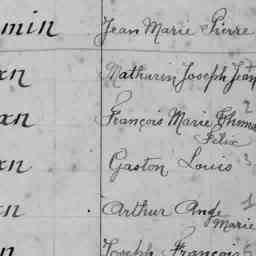 min Jean Marie Pierre
xn Mathurin Joseph Jean
xn François Marie Thomas 2
Félix
xn Gaston Louis 3
xn Arthur Ange 1
Marie
n Joseph François